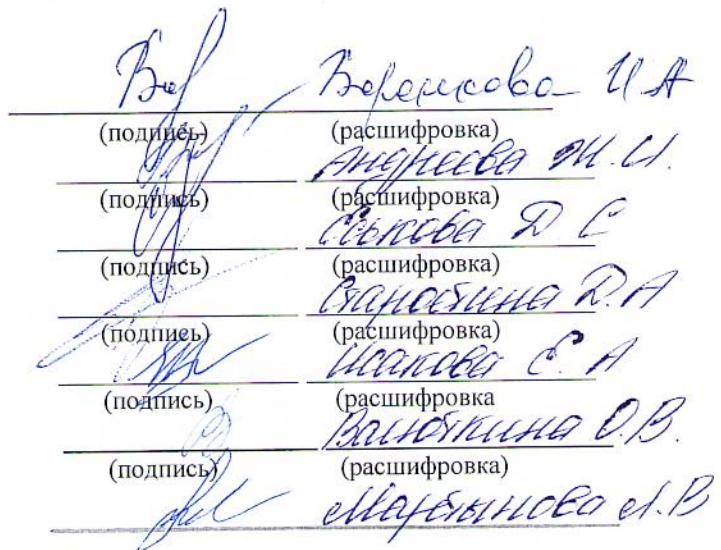 И А
(подпись) (расшифровка)
Андреева Ж.И.
(подпись) (расшифровка)
Еськова Д С
(подпись) (расшифровка)
Д.А
(подпись) (расшифровка)
Исакова Е.А
(подпись) (расшифровка
О.В.
(подпись) (расшифровка)
Мартынова Л.В